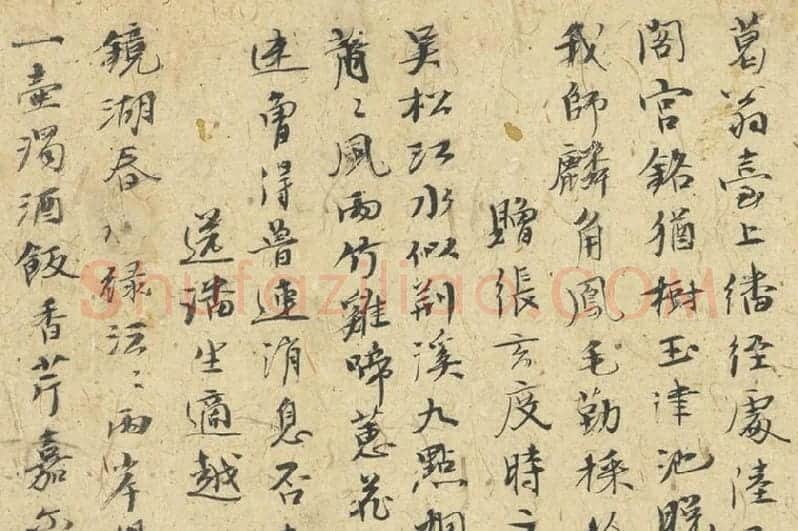 葛翁臺上繙經處陸
閣宮銘猶樹玉津池
我師麟角鳳毛勤採
贈張玄度時
吴松江水似荆溪九點
蕭〻風雨竹雞啼蕙花
曾得普連消息否
送潘生適越
鏡湖春水緑沄〻兩岸
一壺濁酒飯香芹嘉
Shufaziliao.COM